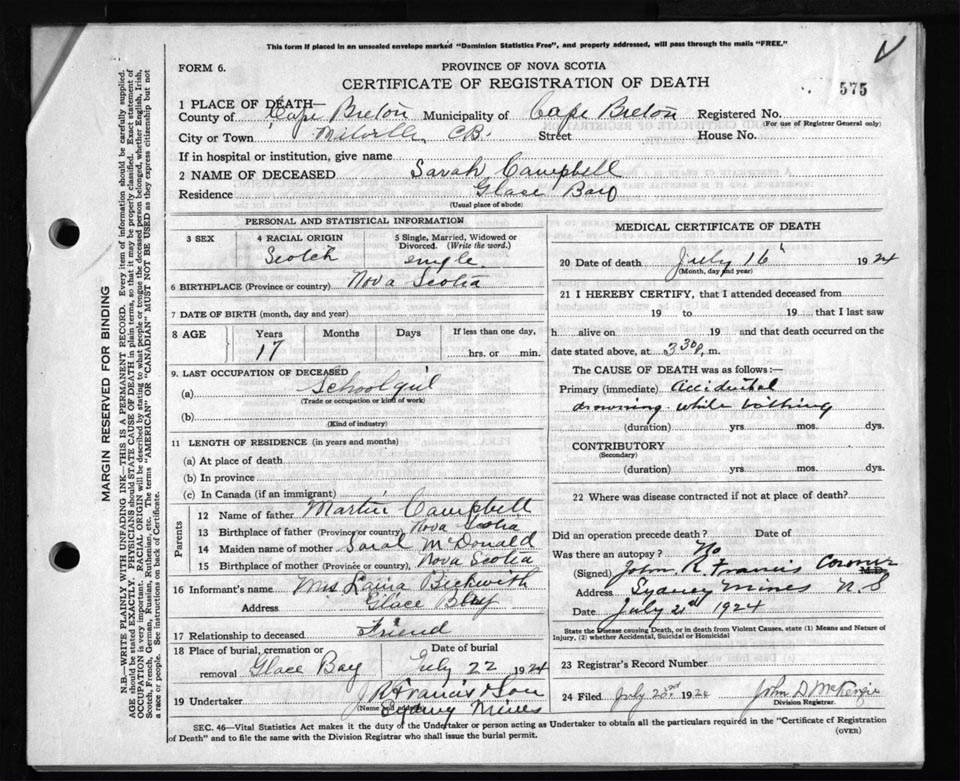 This form if placed in an unsealed envelope marked "Dominion Statistics Free", and properly addressed, will pass through the mails "FREE."
FORM 6.
PROVINCE OF NOVA SCOTIA
CERTIFICATE OF REGISTRATION OF DEATH
575
1 PLACE OF DEATH—
County of Cape Breton Municipality of Cape Breton Registered No.
(For use of Registrar General only)
City or Town Milville, CB. Street House No.
If in hospital or institution, give name
2 NAME OF DECEASED Sarah Campbell
Residence Glace Bay
(Usual place of abode)
PERSONAL AND STATISTICAL INFORMATION
3 SEX
4 RACIAL ORIGIN
Scotch
5 Single, Married, Widowed or Divorced. (Write the word.)
single
6 BIRTHPLACE (Province or country) Nova Scotia
7 DATE OF BIRTH (month, day and year)
8 AGE Years Months Days If less than one day,
17 hrs. or min.
9. LAST OCCUPATION OF DECEASED
(a) Schoolgirl
(Trade or occupation or kind of work)
(b)
(Kind of industry)
11 LENGTH OF RESIDENCE (in years and months)
(a) At place of death
(b) In province
(c) In Canada (if an immigrant)
Parents
12 Name of father Martin Campbell
13 Birthplace of father (Province or country) Nova Scotia
14 Maiden name of mother Sarah McDonald
15 Birthplace of mother (Province or country), Nova Scotia
16 Informant's name Mrs Beckwith
Address Glace Bay
17 Relationship to deceased Friend
18 Place of burial, cremation or removal Glace Bay
Date of burial
July 22 1924
19 Undertaker J R Francis & Son
Sydney Mines
MEDICAL CERTIFICATE OF DEATH
20 Date of death July 16 1924
(Month, day and year)
21 I HEREBY CERTIFY, that I attended deceased from
19 to 19 that I last saw
h alive on 19 and that death occurred on
date stated above, at 3 30 p. m.
The CAUSE OF DEATH was as follows:—
Primary (immediate) Accidental
drowning while bathing
(duration) yrs. mos. dys.
CONTRIBUTORY
(Secondary)
(duration) yrs. mos. dys.
22 Where was disease contracted if not at place of death?
Did an operation precede death? Date of
Was there an autopsy? No
(Signed) John R Francis Coroner M.D.
Address Sydney Mines N.S
Date July 21st 1924
State the Disease causing Death, or in death from Violent Causes, state (1) Means and Nature of Injury, (2) whether Accidental, Suicidal or Homicidal
23 Registrar's Record Number
24 Filed July 1924 John D McKenzie
Division Registrar.
SEC. 46—Vital Statistics Act makes it the duty of the Undertaker or person acting as Undertaker to obtain all the particulars required in the "Certificate of Registration
of Death" and to file the same with the Division Registrar who shall issue the burial permit.
(OVER)
MARGIN RESERVED FOR BINDING
N.B.—WRITE PLAINLY WITH UNFADING INK—THIS IS A PERMANENT RECORD. Every item of information should be carefully supplied.
AGE should be stated EXACTLY. PHYSICIANS should STATE CAUSE OF DEATH in plain terms, so that it may be properly classified. Exact statement of
OCCUPATION is very important. RACIAL ORIGIN will be described by stating to what people or tongue the deceased person belonged, whether English, Irish,
Scotch, French, German, Russian, Ruthenian, etc. The terms "AMERICAN" OR "CANADIAN" MUST NOT BE USED as they express citizenship but not
a race or people. See instructions on back of Certificate.